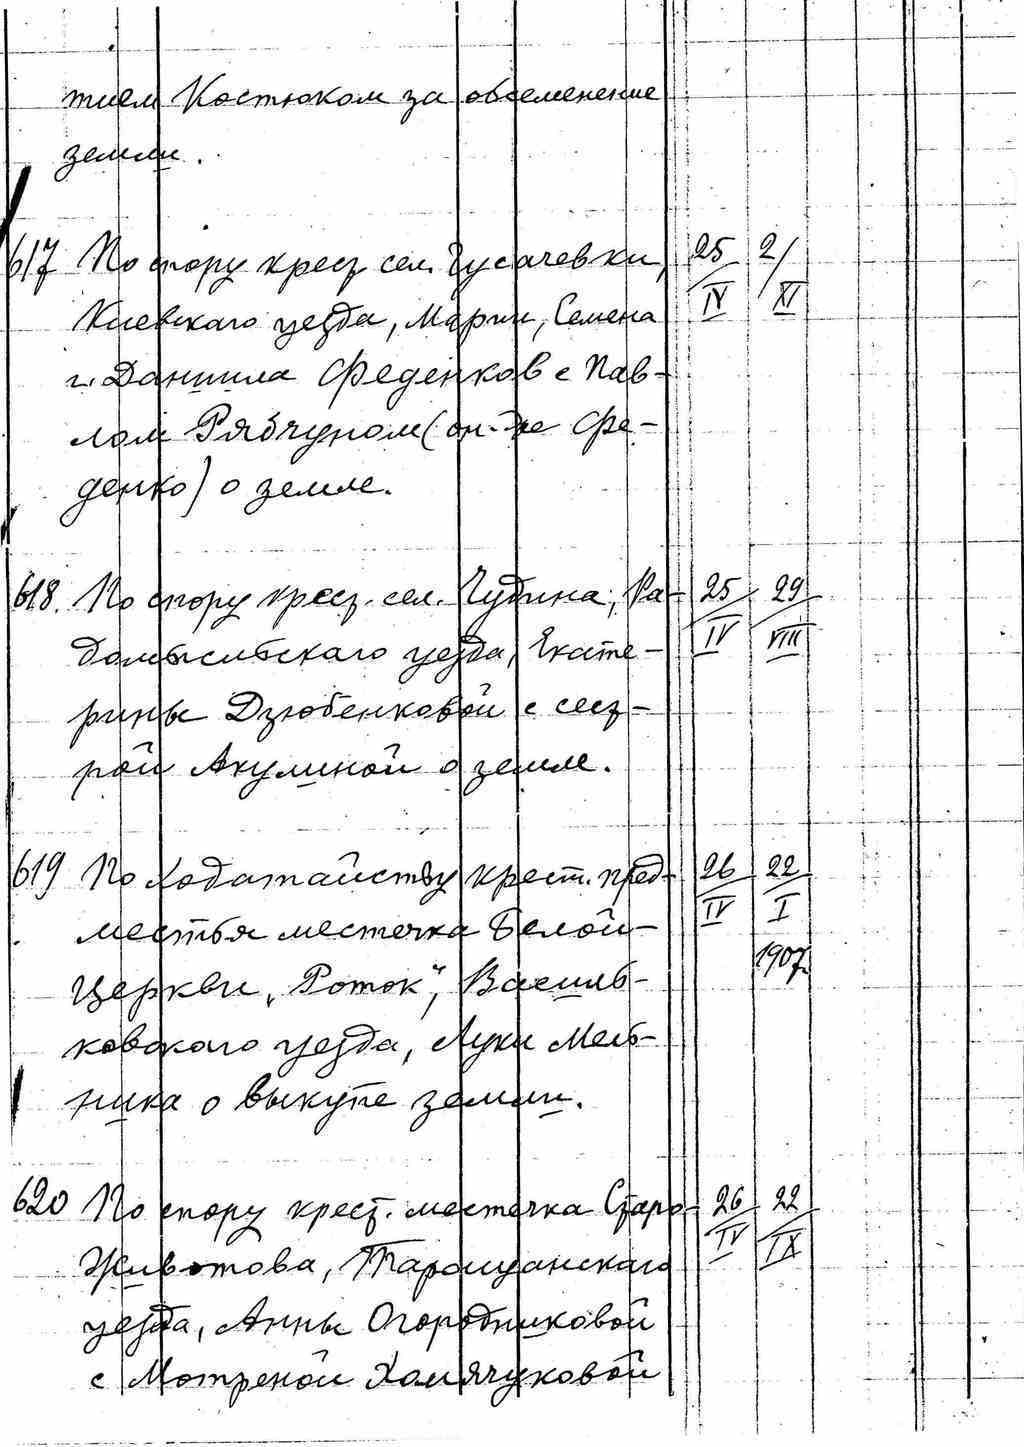 тием Костюком за обсеменение
земли.
617 По спору крест. сел. Гусачевки, 25/IV 2/XI
Киевскаго уезда, Марии, Семена
и Даниила Феденков с Пав-
лом Рябчуном (он-же Фе-
денко) о земле.
618. По спору крест. сел. Чудина, Ра- 25/IV 29/VIII
домысльскаго уезда, Екате-
рины Дзюбенковой с сест-
рой Акулиной о земле.
619 По ходатайству крест. пред- 26/IV 22/I
местья местечка Белой- 1907.
Церкви „Роток“, Василь-
ковскаго уезда, Луки Мель-
ника о выкупе земли.
620 По спору крест. местечка Старо- 26/IV 22/IX
Животова, Таращанскаго
уезда, Анны Огородниковой
с Мотреной Хомячуковой